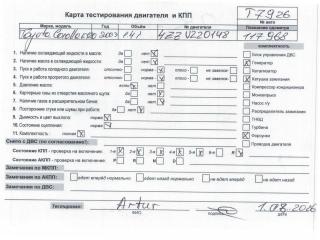 Карта тестирования двигателя и КПП
T7926
Марка, модель Год Объём № двигателя
Toyota Corolla 2003 1.4i 4ZZ U220148 117968
комплектность
1. Наличие охлаждающей жидкости и масла: да нет
2. Наличие масла в охлаждающей жидкости: да нет
3. Пуск и работа холодного двигателя отлично норма плохо не заменен
4. Пуск и работа прогретого двигателя: отлично норма плохо
5. Давление масла: есть нет
6. Картерные газы из отверстия масляного щупа: есть нет
7. Наличие газов в расширительном бачке: Да нет
8. Посторонние стуки или шумы при работе: да нет
9. Дымность и цвет выхлопа: норма
10. Состояние сцепления: норма
11. Комплектность: полная
Блок управления ДВС
Генератор
Катализатор
Катушки зажигания
Компрессор кондиционера
Насос г/у
Распределитель зажигания
ТНВД
Турбина
Форсунки
Проводка двигателя
Снято с ДВС (по согласованию!):
Состояние КПП - проверка на включение: 1-я 2-я 3-я 4-я 5-я 6-я R
Состояние АКПП - проверка на включение: P R N D
Замечания по МКПП:
Замечания по АКПП: едет вперёд нормально едет назад нормально не едет вперёд не едет назад
Замечания по ДВС:
Тестировал: Artur 1.08.2016
ФИО подпись дата